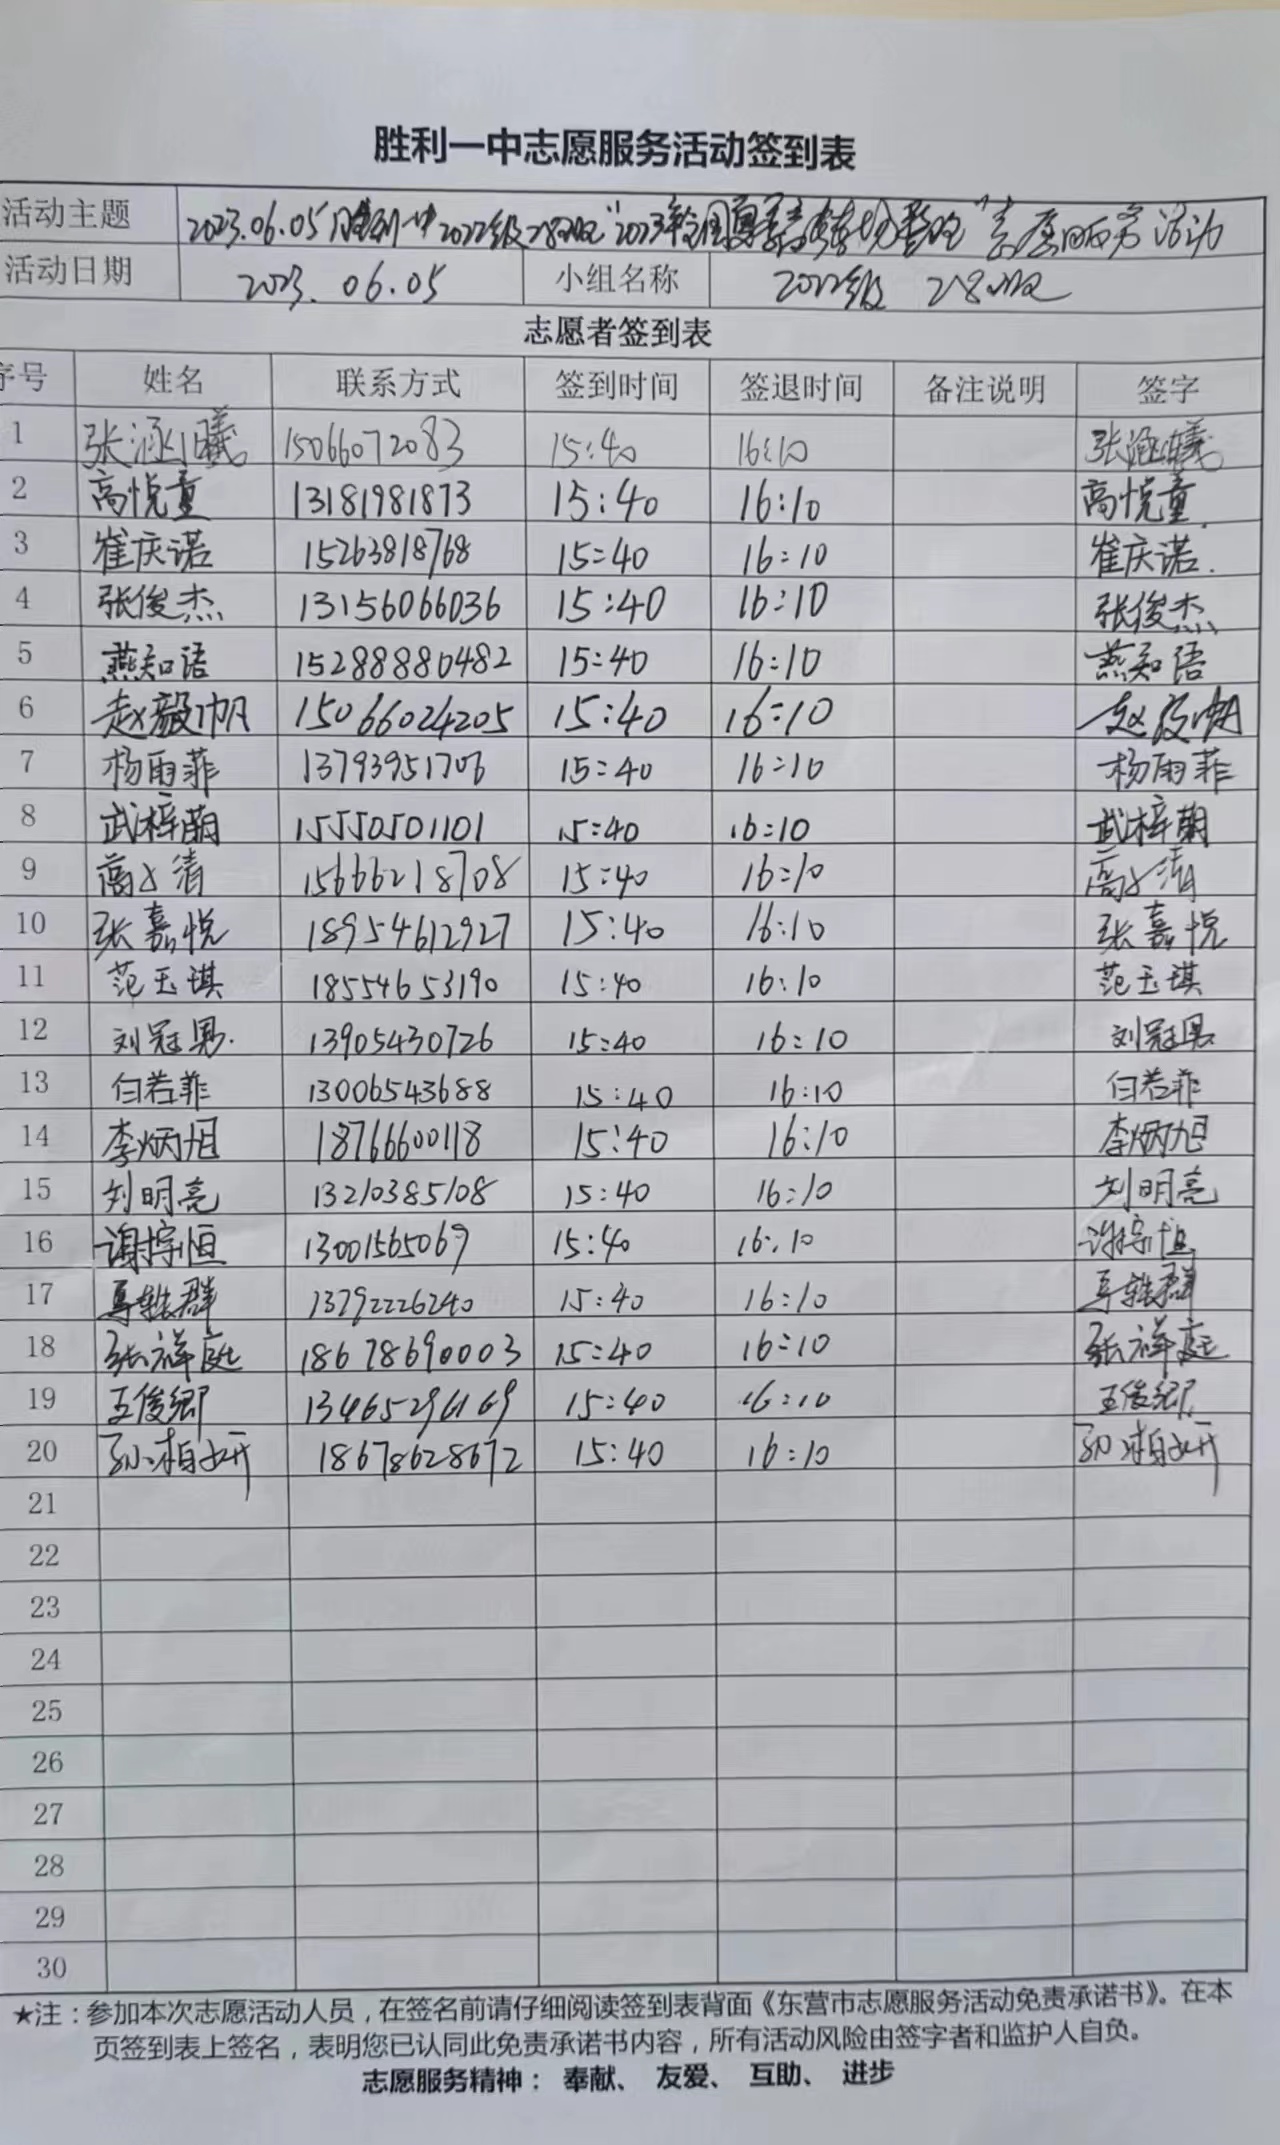 胜利一中志愿服务活动签到表
活动主题 2023.06.05胜利一中2022级28班"2023年全国夏季高考考场整理"志愿服务活动
活动日期 2023.06.05 小组名称 2022级 28班
志愿者签到表
序号 姓名 联系方式 签到时间 签退时间 备注说明 签字
1 张涵曦 15066072083 15:40 16:10 张涵曦
2 高悦童 13181981873 15:40 16:10 高悦童
3 崔庆诺 15263818768 15:40 16:10 崔庆诺.
4 张俊杰 13156066036 15:40 16:10 张俊杰
5 燕知语 15288880482 15:40 16:10 燕知语
6 赵毅帆 15066024205 15:40 16:10 赵毅帆
7 杨雨菲 13793951706 15:40 16:10 杨雨菲
8 武梓萌 15550501101 15:40 16:10 武梓萌
9 15666218708 15:40 16:10
10 张嘉悦 18954612927 15:40 16:10 张嘉悦
11 范玉琪 18554653190 15:40 16:10 范玉琪
12 刘冠男. 13905430726 15:40 16:10 刘冠男
13 白若菲 13006543688 15:40 16:10 白若菲
14 李炳旭 18766600118 15:40 16:10 李炳旭
15 刘明亮 13210385108 15:40 16:10 刘明亮
16 谢梓恒 13001565069 15:40 16:10 谢梓恒
17 马轶群 13792226240 15:40 16:10 马轶群
18 张祥庭 18678690003 15:40 16:10 张祥庭
19 王俊卿 13465296169 15:40 16:10 王俊卿
20 孙湘妍 18678628672 15:40 16:10 孙湘妍
21
22
23
24
25
26
27
28
29
30
★注：参加本次志愿活动人员，在签名前请仔细阅读签到表背面《东营市志愿服务活动免责承诺书》。在本
页签到表上签名，表明您已认同此免责承诺书内容，所有活动风险由签字者和监护人自负。
志愿服务精神： 奉献、 友爱、 互助、 进步